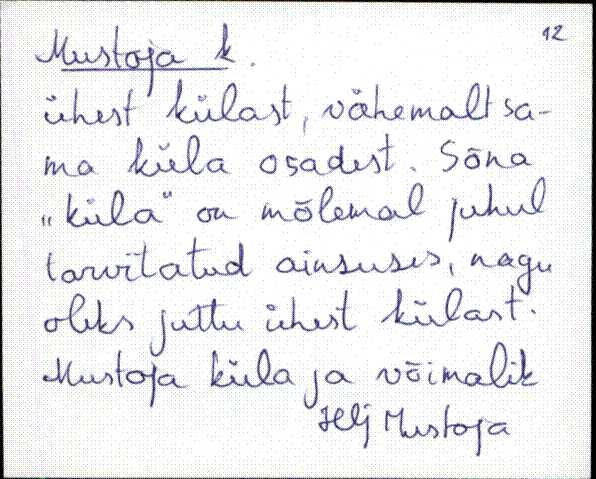 12
Mustoja k.
ühest külast, vähemalt sa-
ma küla osadest. Sõna
„küla" on mõlemal juhul
tarvitatud ainsuses, nagu
oleks juttu ühest külast.
Mustoja küla ja võimalik
Mustoja